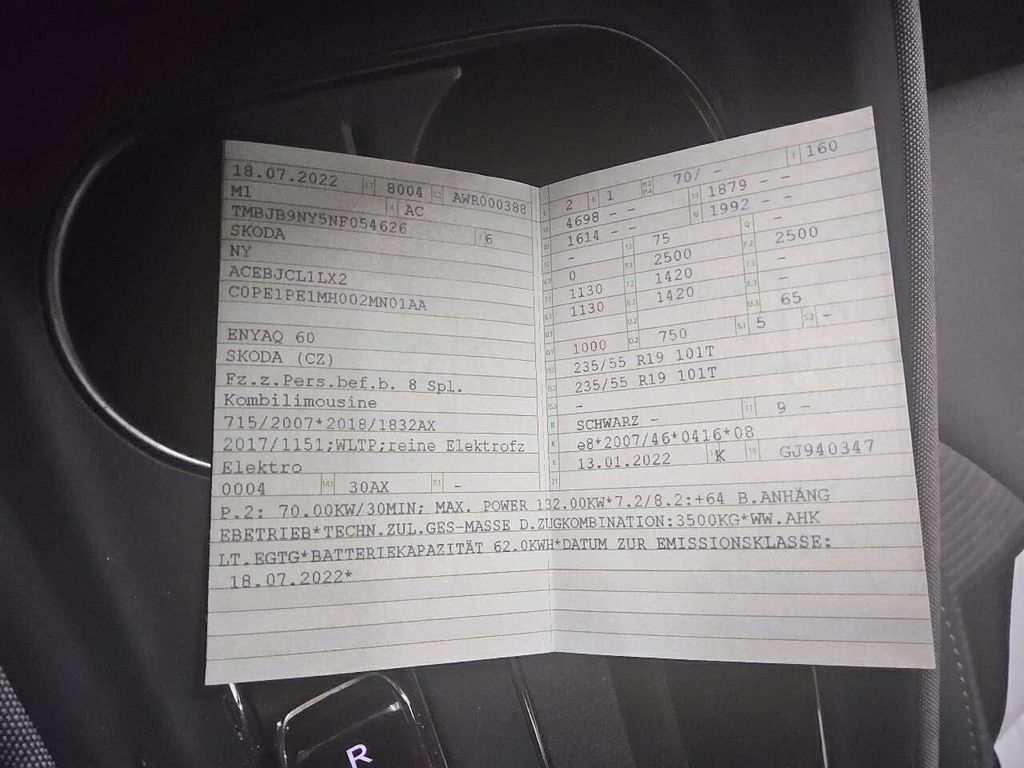 18.07.2022 2.1 8004 2.2 AWR000388
M1 4 AC
TMBJB9NY5NF054626 3 6
SKODA
NY
ACEBJCL1LX2
C0PE1PE1MH002MN01AA
ENYAQ 60
SKODA (CZ)
Fz.z.Pers.bef.b. 8 Spl.
Kombilimousine
715/2007*2018/1832AX
2017/1151;WLTP;reine Elektrofz
Elektro
0004 14.1 30AX P.1 -
L 2 9 1 P.2 P.4 70/ - T 160
18 4698 - - 19 1879 - -
20 1614 - - G 1992 - -
12 - 13 75 Q -
V.7 0 F.1 2500 F.2 2500
7.1 1130 7.2 1420 7.3 -
8.1 1130 8.2 1420 8.3 -
U.1 U.2 U.3 65
O.1 1000 O.2 750 S.1 5 S.2 -
15.1 235/55 R19 101T
15.2 235/55 R19 101T
15.3 -
R SCHWARZ - 11 9 -
K e8*2007/46*0416*08
6 13.01.2022 17 K 16 GJ940347
21
P.2: 70.00KW/30MIN; MAX. POWER 132.00KW*7.2/8.2:+64 B.ANHÄNG
EBETRIEB*TECHN.ZUL.GES-MASSE D.ZUGKOMBINATION:3500KG*WW.AHK
LT.EGTG*BATTERIEKAPAZITÄT 62.0KWH*DATUM ZUR EMISSIONSKLASSE:
18.07.2022*
R